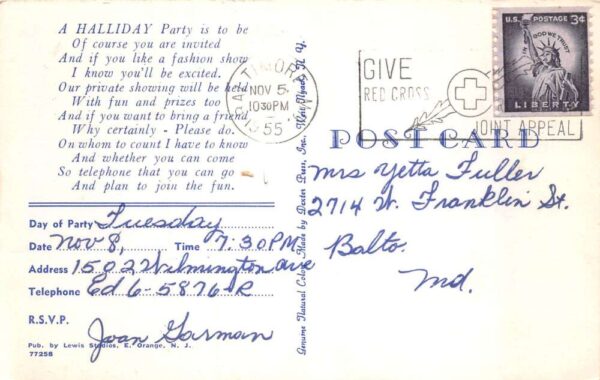 A HALLIDAY Party is to be
Of course you are invited
And if you like a fashion show
I know you'll be excited.
Our private showing will be held
With fun and prizes too
And if you want to bring a friend
Why certainly - Please do.
On whom to count I have to know
And whether you can come
So telephone that you can go
And plan to join the fun.
Day of Party Tuesday
Date Nov 8, Time 7:30 PM
Address 1502 Wilmington Ave
Telephone Ed 6-5876-R
R.S.V.P. Joan Garman
Pub. by Lewis Studios, E. Orange, N. J.
77258
Genuine Natural Color Made by Dexter Press, Inc., West Nyack, N. Y.
BALTIMORE
NOV 5
10 30 PM
55
GIVE
RED CROSS
JOINT APPEAL
U.S. POSTAGE 3¢
IN GOD WE TRUST
LIBERTY
POST CARD
Mrs Yetta Fuller
2714 W. Franklin St.
Balto.
Md.